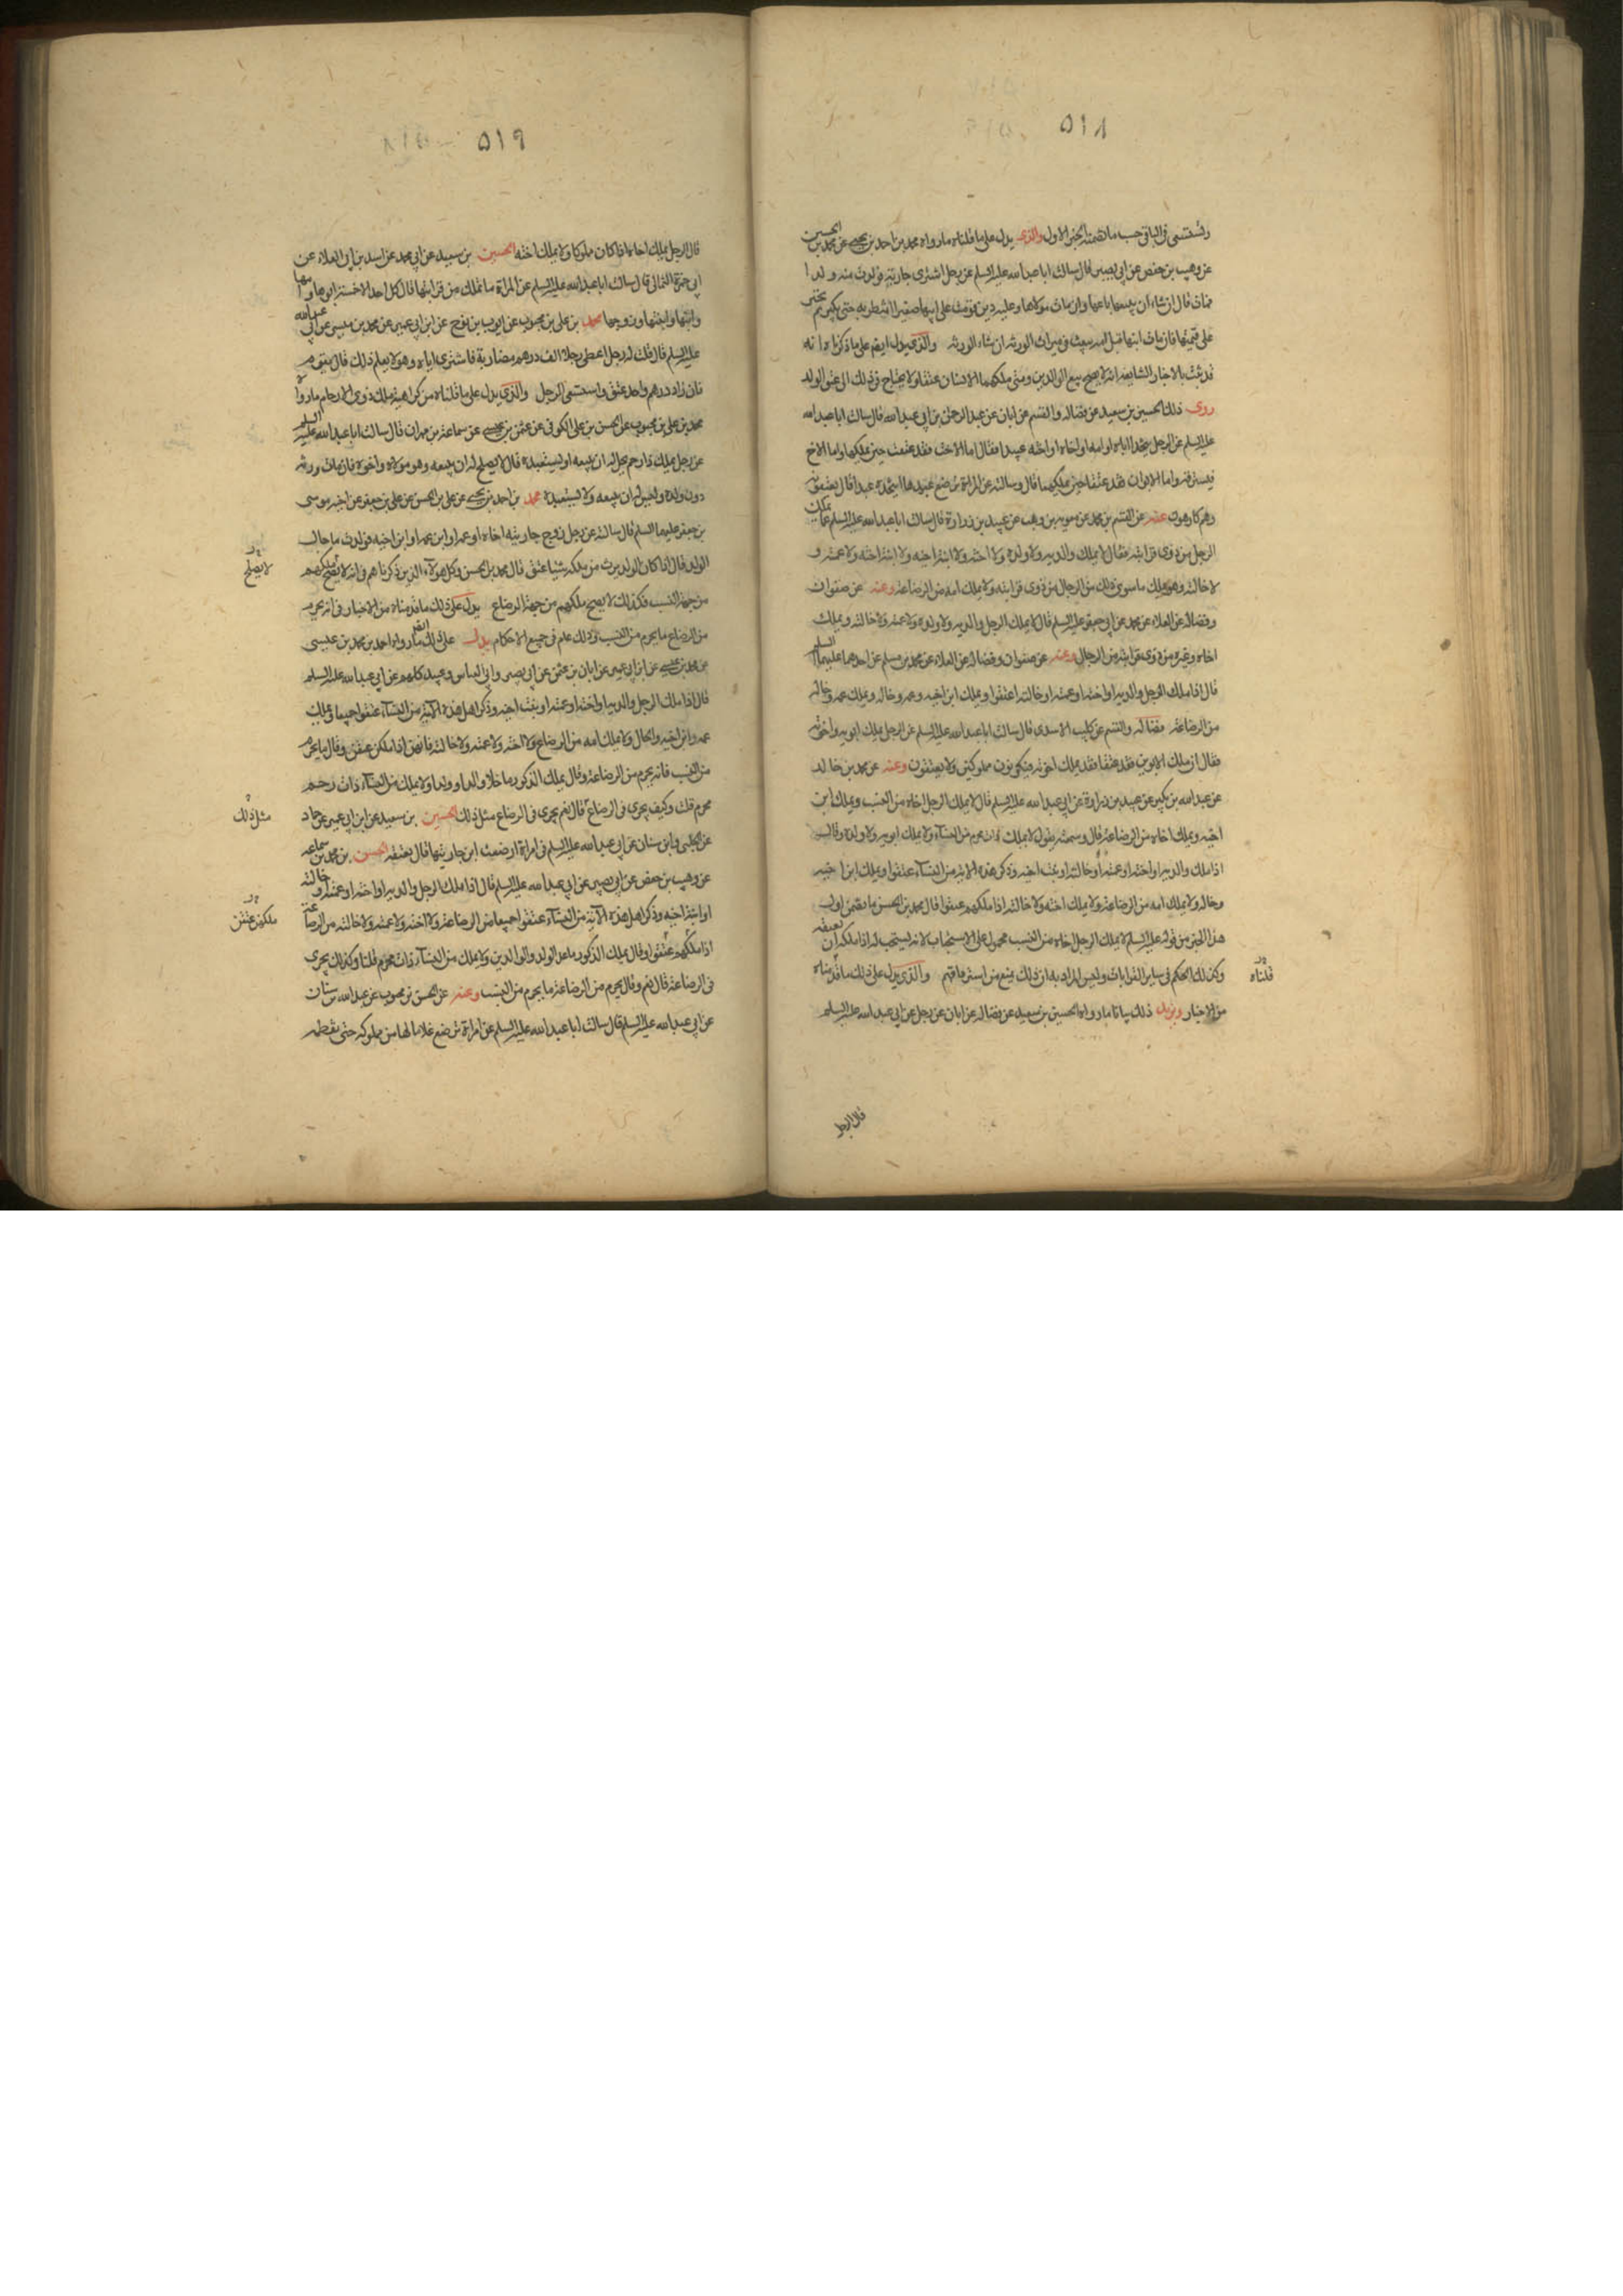 ٥١٨
وتستسعى فى الباقى حسب ما تضمنه الخبر الاول والذى يدل على ما قلناه ما رواه محمد بن احمد بن يحيى عن محمد بن الحسين
عن وهيب بن حفص عن ابى بصير قال سالت ابا عبد الله عليه السلم عن رجل اشترى جارية فولدت منه ولدا
فمات قال ان شاء ان يبيعها باعها وان مات مولاها وعليه دين قومت على ابنها فان كان ابنها صغيرا انتظر به حتى يكبر ثم يجبر
على قيمتها فان مات ابنها قبل امه بيعت فى ميراث الورثة ان شاء الورثه والذى يدل ايضا على ما ذكرناه انه
قد ثبت بالاخبار الشايعه انه لا يصح بيع الوالدين ومتى ملكهما الانسان عتقا ولا يحتاج فى ذلك الى عتق الولد
روى ذلك الحسين بن سعيد عن فضاله والقسم عن ابان عن عبد الرحمن بن ابى عبد الله قال سالت ابا عبد الله
عليه السلم عن الرجل يتخذ اباه او امه او اخاه او اخته عبيدا فقال اما الاخت فقد عتقت حين يملكها واما الاخ
فيسترقه واما الابوان فقد عتقا حين يملكهما قال وسالته عن المراة ترضع عبدها اتتخذه عبدا قال يعتقونه
وهم كارهون عنه عن القسم بن محمد عن معويه بن وهب عن عبيد بن زرارة قال سالت ابا عبد الله عليه السلم عما يملك
الرجل من ذوى قرابته فقال لا يملك والديه ولا ولده ولا اخته ولا ابنة اخيه ولا ابنة اخته ولا عمته و
لا خالته وهو يملك ما سوى ذلك من الرجال من ذوى قرابته ولا يملك امه من الرضاعة وعنه عن صفوان
وفضاله عن العلاء عن محمد عن ابى جعفر عليه السلم قال لا يملك الرجل والديه ولا ولده ولا عمته ولا خالته ويملك
اخاه وغيره من ذوى قرابته من الرجال وعنه عن صفوان وفضاله عن العلاء عن محمد بن مسلم عن احدهما عليهما السلم
قال اذا ملك الرجل والديه او اخته او عمته او خالته اعتقوا ويملك ابن اخيه وعمه وخاله ويملك عمه وخاله
من الرضاعة فضاله والقسم عن كليب الاسدى قال سالت ابا عبد الله عليه السلم عن الرجل يملك ابويه واخوته
فقال ان ملك الابوين فقد عتقا وقد يملك اخوته فيكونون مملوكين ولا يعتقون وعنه عن محمد بن خالد
عن عبد الله بن بكير عن عبيد بن زرارة عن ابى عبد الله عليه السلم قال لا يملك الرجل اخاه من النسب ويملك ابن
اخيه ويملك اخاه من الرضاعة قال وسمعته يقول لا يملك ذات محرم من النسآء ولا يملك ابويه ولا ولده وقال
اذا ملك والديه او اخته او عمته او خالته او بنت اخيه وذكر هذه الاية من النسآء عتقوا ويملك ابن اخيه
وخاله ولا يملك امه من الرضاعة ولا يملك اخته ولا خالته اذا ملكهم عتقوا قال محمد بن الحسن ما تضمن اول
هذا الخبر من قوله عليه السلم لا يملك الرجل اخاه من النسب محمول على الاستحباب لانه يستحب له اذا ملكه ان يعتقه
وكذلك الحكم فى ساير القرابات وليس المراد به ان ذلك يمنع من استرقاقهم والذى يدل على ذلك ما قدمناه
قلناه
من الاخبار ويزيد ذلك بيانا ما رواه الحسين بن سعيد عن فضاله عن ابان عن رجل عن ابى عبد الله عليه السلم
قال الرجل
٥١٩
قال الرجل يملك اخاه اذا كان مملوكا ولا يملك اخته الحسين بن سعيد عن ابى محمد عن اسد بن ابى العلاء عن
ابى حمزة الثمالى قال سالت ابا عبد الله عليه السلم عن المراة ما تملك من قرابتها قال كل احد الا خمسة ابوها وامها
وابنها وابنتها وزوجها محمد بن على بن محبوب عن ايوب بن نوح عن ابن ابى عمير عن محمد بن ميسر عن ابى عبد الله
عليه السلم قال قلت له رجل اعطى رجلا الف درهم مضاربة فاشترى اباه وهو لا يعلم ذلك قال يقوم
فان زاد درهم واحد عتق واستسعى الرجل والذى يدل على ما قلناه من كراهية ملك ذوى الارحام ما رواه
محمد بن على بن محبوب عن الحسن بن على الكوفى عن عثمن بن عيسى عن سماعة بن مهران قال سالت ابا عبد الله عليه السلم
عن رجل يملك ذا رحم يحل له ان يبيعه او يستعبده قال لا يصلح له ان يبيعه وهو مولاه واخوه فان مات ورثه
دون ولده وليس له ان يبيعه ولا يستعبده محمد بن احمد بن يحيى عن على بن الحسن عن على بن جعفر عن اخيه موسى
بن جعفر عليهما السلم قال سالته عن رجل زوج جاريته اخاه او عمه او ابن عمه او ابن اخيه فولدت ما حال
الولد قال اذا كان الولد يرث من ملكه شيئا عتق قال محمد بن الحسن وكل هولاء الذين ذكرناهم فانه لا يصح ملكهم
لا يصلح
من جهة النسب فكذلك لا يصح ملكهم من جهة الرضاع يدل على ذلك ما قدمناه من الاخبار فى انه يحرم
من الرضاع ما يحرم من النسب وذلك عام فى جميع الاحكام يدل على ذلك ايضا ما رواه احمد بن محمد بن عيسى
عن محمد بن عيسى عن ابن ابى عمير عن ابان بن عثمن عن ابى بصير وابى العباس وعبيد كلهم عن ابى عبد الله عليه السلم
قال اذا ملك الرجل والديه او اخته او عمته او بنت اخيه وذكر اهل هذه الآية من النسآء عتقوا جميعا ويملك
عمه وابن اخيه والخال ولا يملك امه من الرضاع ولا اخته ولا عمته ولا خالته فانهن اذا ملكن عتقن وقال ما يحرم
من النسب فانه يحرم من الرضاعة وقال يملك الذكور ما خلا والدا او ولدا ولا يملك من النسآء ذات رحم
محرم قلت وكيف يجرى فى الرضاع قال نعم يجرى فى الرضاع مثل ذلك الحسين بن سعيد عن ابن ابى عمير عن حماد
مثل ذلك
عن الحلبى وابن سنان عن ابى عبد الله عليه السلم فى امراة ارضعت ابن جاريتها قال تعتقه الحسن بن محمد بن سماعه
عن وهيب بن حفص عن ابى بصير عن ابى عبد الله عليه السلم قال اذا ملك الرجل والديه او اخته او عمته او خالته
او ابنة اخيه وذكر اهل هذه الآية من النسآء عتقوا جميعا من الرضاعة ولا اخته ولا عمته ولا خالته من الرضاعة
ملكهن عتقن
اذا ملكهم عتقوا وقال يملك الذكور ما عدا الولد والوالدين ولا يملك من النسآء ذات محرم قلنا وكذلك يجرى
فى الرضاعة قال نعم وقال يحرم من الرضاعة ما يحرم من النسب وعنه عن الحسن بن محبوب عن عبد الله بن سنان
عن ابى عبد الله عليه السلم قال سالت ابا عبد الله عليه السلم عن امراة ترضع غلاما لها من مملوكه حتى تفطمه